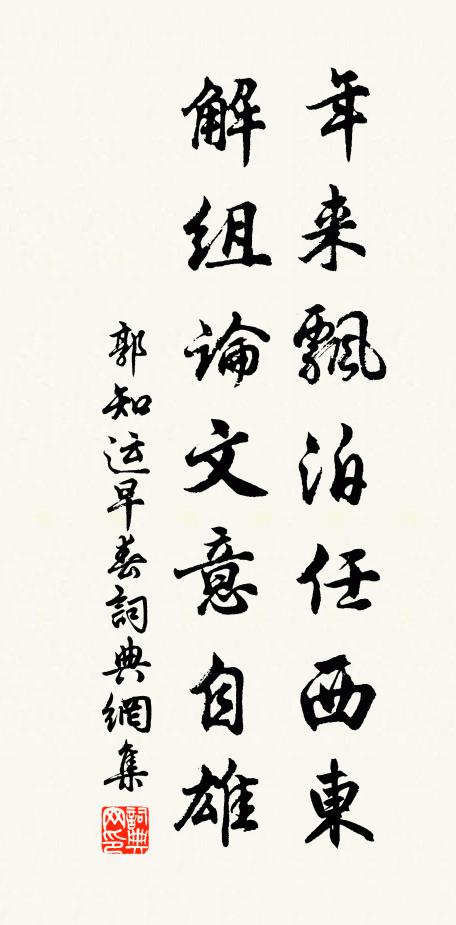 年来飄泊任西東
解组論文意自雄
郭知运早春詞典網集
詞典网印